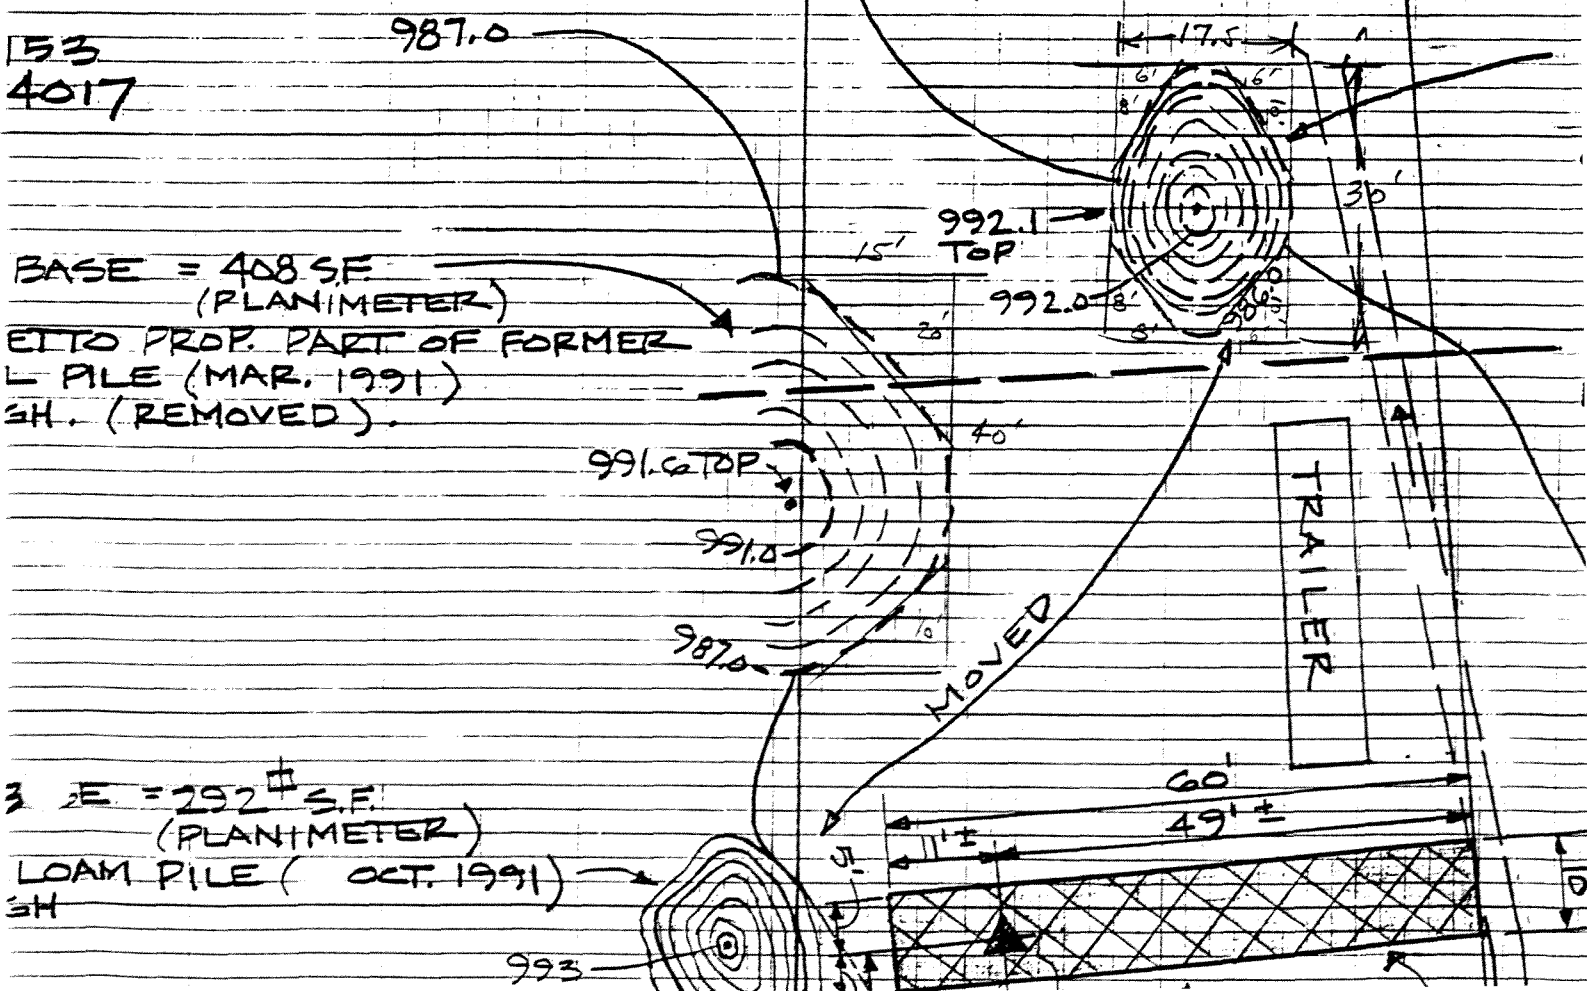 153
4017
987.0
17.5
6'
6'
8'
10'
30'
992.1
TOP
992.0
8'
8'
986.0
15'
20'
40'
10'
BASE = 408 S.F.
(PLANIMETER)
ETTO PROP. PART OF FORMER
L PILE (MAR. 1991)
GH. (REMOVED).
991.6 TOP
991.0
987.0
MOVED
TRAILER
60'
49' ±
11' ±
5'
10
E = 292 S.F.
(PLANIMETER)
LOAM PILE ( OCT. 1991)
GH
993